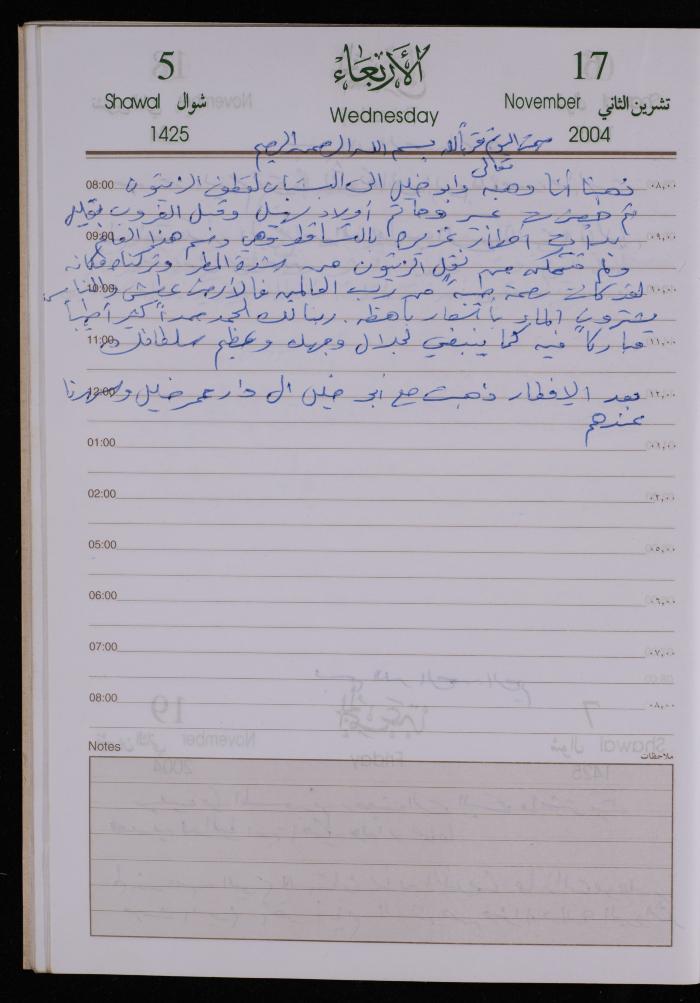 5
Shawal شوال
1425
الأربعاء
Wednesday
17
November تشرين الثاني
2004
بسم الله الرحمن الرحيم
تعالى
08:00 ذهبنا أنا وهبه وابو خليل الى البستان لقطف الزيتون ٠٨,٠٠
ثم حضرت أولاد وقبل الغروب بقليل
09:00 بدأت أمطار غزيره بالتساقط وهي هذا العام ٠٩,٠٠
ولم نتمكن من نقل الزيتون من شدة المطر وتركناه مكانه
10:00 لقد كانت رحمة طيبه من رب العالمين فالأرض عطشى والناس ١٠,٠٠
يشترون الماء بأسعار باهظه. ربنا لك الحمد حمداً كثيراً طيباً
11:00 مباركاً فيه كما ينبغي لجلال وجهك وعظيم سلطانك ١١,٠٠
12:00 بعد الإفطار ذهبت مع أبو خليل الى دار عمر خليل وسهرنا ١٢,٠٠
عندهم
01:00 ٠١,٠٠
02:00 ٠٢,٠٠
05:00 ٠٥,٠٠
06:00 ٠٦,٠٠
07:00 ٠٧,٠٠
08:00 ٠٨,٠٠
Notes ملاحظات